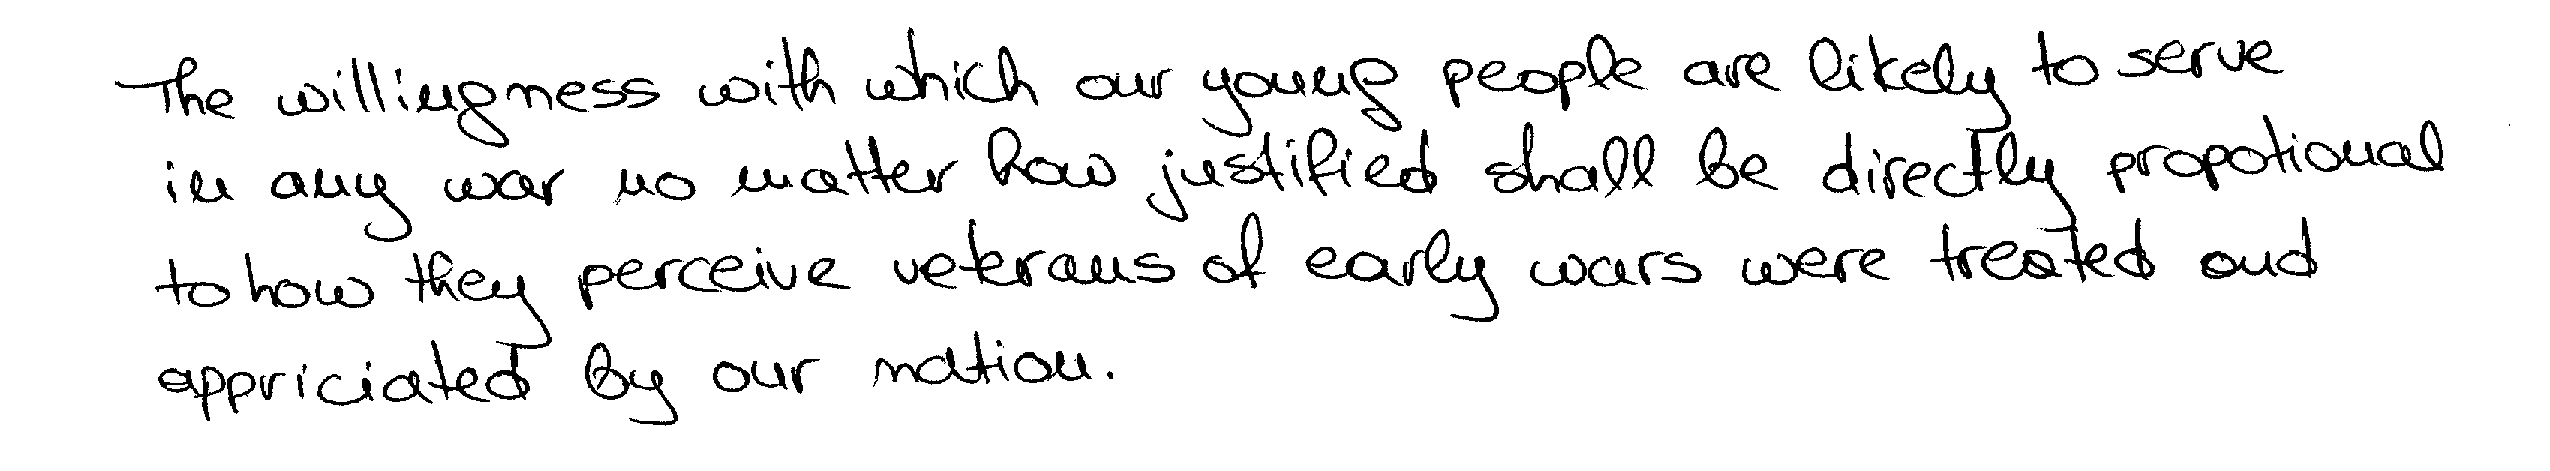 The willingness with which our young people are likely to serve
in any war no matter how justified shall be directly propotional
to how they perceive veterans of early wars were treated and
appriciated by our nation.